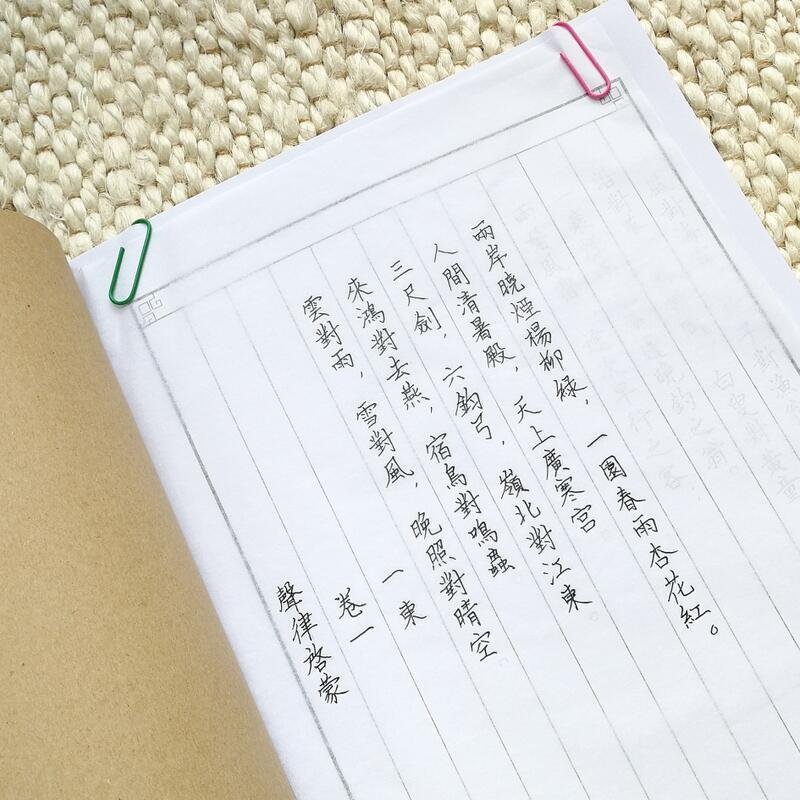 聲律啓蒙
卷一
一東
雲對雨，雪對風，晚照對晴空
來鴻對去燕，宿鳥對鳴蟲
三尺劍，六鈞弓，嶺北對江東
人間清暑殿，天上廣寒宮
兩岸曉煙楊柳綠，一園春雨杏花紅。